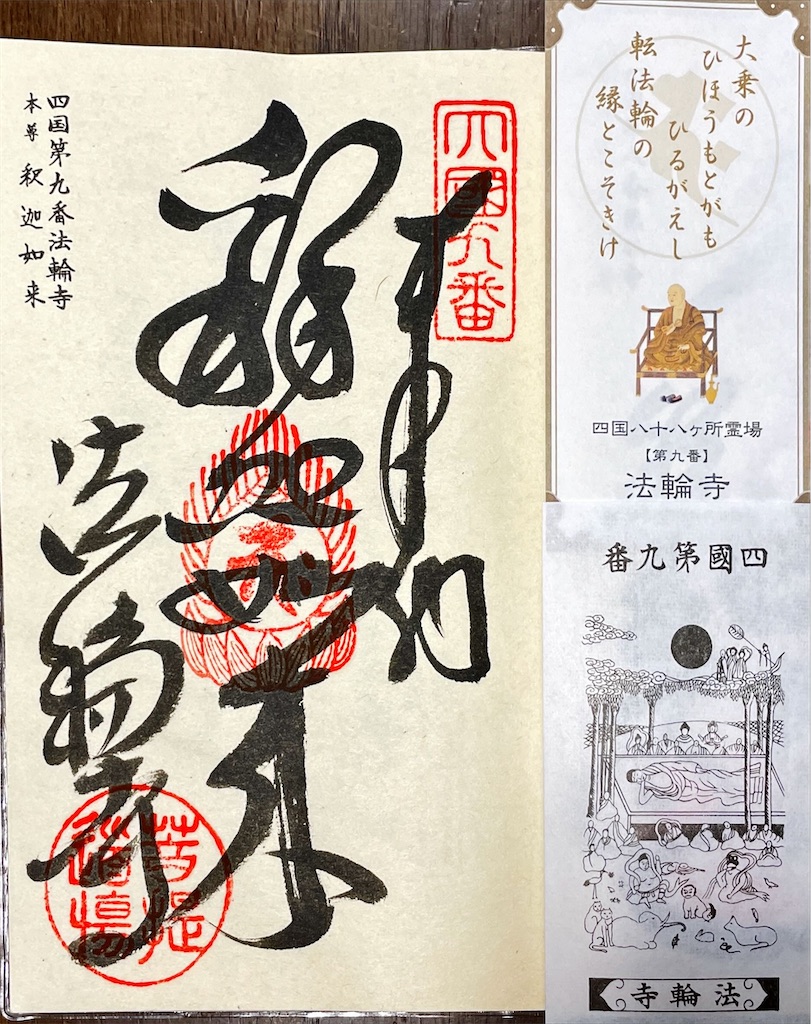 四國九番
奉納
釋迦如来
法輪寺
菩提
道場
四国第九番法輪寺
本尊 釈迦如来
大乗の
ひほうもとがも
ひるがえし
転法輪の
縁とこそきけ
四国八十八ヶ所霊場
【第九番】
法輪寺
四國第九番
法輪寺